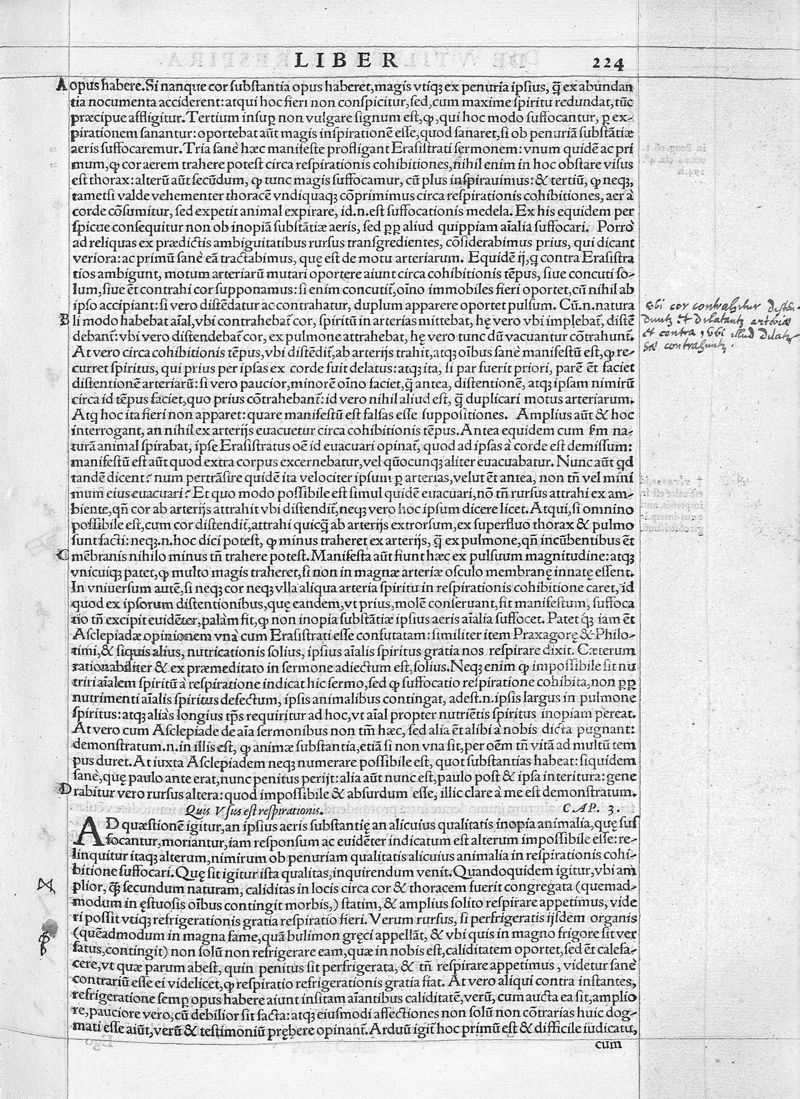 LIBER 224
A opus habere. Si nanque cor substantia opus haberet, magis vtiq; ex penuria ipsius, q̃ ex abundan
tia nocumenta acciderent: atqui hoc fieri non conspicitur, sed, cum maxime spiritu redundat, tũc
præcipue affligitur. Tertium insuꝑ non vulgare signum est, ꝙ, qui hoc modo suffocantur, ꝑ ex-
pirationem sanantur: oportebat aũt magis inspirationẽ esse, quod sanaret, si ob penuriã substãtiæ
aeris suffocaremur. Tria sanè hæc manifeste profligant Erasistrati sermonem: vnum quidẽ ac pri
mum, ꝙ cor aerem trahere potest circa respirationis cohibitiones, nihil enim in hoc obstare visus
est thorax: alterũ aũt secũdum, ꝙ tunc magis suffocamur, cũ plus inspirauimus: & tertiũ, ꝙ neq;,
tametsi valde vehementer thoracẽ vndiquaq; cõprimimus circa respirationis cohibitiones, aer à
corde cõsumitur, sed expetit animal expirare, id.n.est suffocationis medela. Ex his equidem per
spicue consequitur non ob inopiã substãtiæ aeris, sed ꝓꝑ aliud quippiam aĩalia suffocari. Porrò
ad reliquas ex prædictis ambiguitatibus rursus transgredientes, cõsiderabimus prius, qui dicant
veriora: ac primũ sanè eã tractabimus, quę est de motu arteriarum. Equidẽ ij, q contra Erasistra
tios ambigunt, motum arteriarũ mutari oportere aiunt circa cohibitionis tẽpus, siue concuti so-
lum, siue ẽt contrahi cor supponamus: si enim concutit̃, oĩno immobiles fieri oportet, cũ nihil ab
ipso accipiant: si vero distẽdatur ac contrahatur, duplum apparere oportet pulsum. Cũ.n.natura
B li modo habebat aĩal, vbi contrahebat̃ cor, spiritũ in arterias mittebat, hę vero vbi implebat̃, distẽ
debant̃: vbi vero distendebat̃ cor, ex pulmone attrahebat, hę vero tunc dũ vacuantur cõtrahunt̃.
At vero circa cohibitionis tẽpus, vbi distẽdit̃, ab arterijs trahit, atq; oĩbus sanè manifestũ est, ꝙ re-
curret spiritus, qui prius per ipsas ex corde fuit delatus: atq; ita, si par fuerit priori, parẽ ẽt faciet
distentionẽ arteriarũ: si vero paucior, minorẽ oĩno faciet, q̃ antea, distentionẽ, atq; ipsam nimirũ
circa id tẽpus faciet, quo prius cõtrahebant̃: id vero nihil aliud est, q̃ duplicari motus arteriarum.
Atq; hoc ita fieri non apparet: quare manifestũ est falsas esse suppositiones. Amplius aũt & hoc
interrogant, an nihil ex arterijs euacuetur circa cohibitionis tẽpus. Antea equidem cum ſm na-
turã animal spirabat, ipse Erasistratus oẽ id euacuari opinat̃, quod ad ipsas à corde est demissum:
manifestũ est aũt quod extra corpus excernebatur, vel quocunq; aliter euacuabatur. Nunc aũt qd
tandẽ dicent? num pertrãsire quidẽ ita velociter ipsum ꝑ arterias, velut ẽt antea, non tñ vel mini
mum eius euacuari? Et quo modo possibile est simul quidẽ euacuari, nõ tñ rursus attrahi ex am-
biente, qñ cor ab arterijs attrahit vbi distendit̃, neq; vero hoc ipsum dicere licet. Atqui, si omnino
possibile est, cum cor distendit̃, attrahi quicq̃ ab arterijs extrorsum, ex superfluo thorax & pulmo
sunt facti: neq;.n.hoc dici potest, ꝙ minus traheret ex arterijs, q̃ ex pulmone, qñ incũbentibus ẽt
C mẽbranis nihilo minus tñ trahere potest. Manifesta aũt fiunt hæc ex pulsuum magnitudine: atq;
vnicuiq; patet, ꝙ multo magis traheret, si non in magnæ arteriæ osculo membranę innatę essent.
In vniuersum autẽ, si neq; cor neq; vlla aliqua arteria spiritu in respirationis cohibitione caret, id
quod ex ipsorum distentionibus, quę eandem, vt prius, molẽ conseruant, fit manifestum, suffoca
tio tñ excipit euidẽter, palàm fit, ꝙ non inopia substãtiæ ipsius aeris aĩalia suffocet. Patet q; iam ẽt
Asclepiadæ opinionem vna cum Erasistrati esse confutatam: similiter item Praxagorę & Philo-
timi, & siquis alius, nutricationis solius, ipsius aĩalis spiritus gratia nos respirare dixit. Cæterum
rationabiliter & ex præmeditato in sermone adiectum est, solius. Neq; enim ꝙ impossibile sit nu
triri aĩalem spiritũ à respiratione indicat hic sermo, sed ꝙ suffocatio respiratione cohibita, non ꝓꝑ
nutrimenti aĩalis spiritus defectum, ipsis animalibus contingat, adest.n.ipsis largus in pulmone
spiritus: atq; aliàs longius tp̃s requiritur ad hoc, vt aĩal propter nutriẽtis spiritus inopiam pereat.
At vero cum Asclepiade de aĩa sermonibus non tñ hæc, sed alia ẽt alibi à nobis dicta pugnant:
demonstratum.n.in illis est, ꝙ animæ substantia, etiã si non vna sit, per oẽm tñ vitã ad multũ tem
pus duret. At iuxta Asclepiadem neq; numerare possibile est, quot substantias habeat: siquidem
sanè, quę paulo ante erat, nunc penitus perijt: alia aũt nunc est, paulo post & ipsa interitura: gene
D rabitur vero rursus altera: quod impossibile & absurdum esse, illic clare à me est demonstratum.
Quis Vsus est respirationis. CAP. 3.
AD quæstionẽ igitur, an ipsius aeris substantię an alicuius qualitatis inopia animalia, quę suf
focantur, moriantur, iam responsum ac euidẽter indicatum est alterum impossibile esse: re-
linquitur itaq; alterum, nimirum ob penuriam qualitatis alicuius animalia in respirationis cohi-
bitione suffocari. Quę sit igitur ista qualitas, inquirendum venit. Quandoquidem igitur, vbi am
plior, q̃ secundum naturam, caliditas in locis circa cor & thoracem fuerit congregata (quemad-
modum in ęstuosis oĩbus contingit morbis,) statim, & amplius solito respirare appetimus, vide
ri possit vtiq; refrigerationis gratia respiratio fieri. Verum rursus, si perfrigeratis ijsdem organis
(quẽadmodum in magna fame, quã bulimon gręci appellãt, & vbi quis in magno frigore sit ver
satus, contingit) non solũ non refrigerare eam, quæ in nobis est, caliditatem oportet, sed ẽt calefa-
cere, vt quæ parum abest, quin penitus sit perfrigerata, & tñ respirare appetimus, videtur sanè
contrariũ esse ei videlicet, ꝙ respiratio refrigerationis gratia fiat. At vero aliqui contra instantes,
refrigeratione semꝑ opus habere aiunt insitam aĩantibus caliditatẽ, verũ, cum aucta ea sit, amplio
re, pauciore vero, cũ debilior sit facta: atq; eiusmodi affectiones non solũ non cõtrarias huic dog-
mati esse aiũt, verũ & testimoniũ prębere opinant̃. Arduũ igit̃ hoc primũ est & difficile iudicatu,
cum
Vbi cor contrahitur disten
dunt̃ et dilatant̃ arteriæ
et contra, vbi illud dilat̃
hæ contrahunt̃.